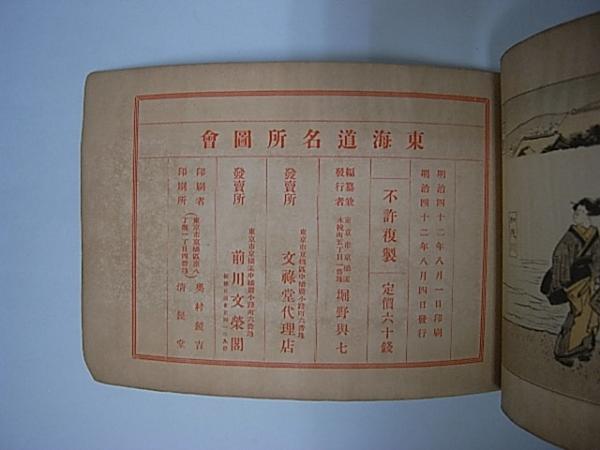 東海道名所圖會
明治四十二年八月一日印刷
明治四十二年八月四日發行
不許復製
定價六十錢
編纂兼
發行者
東京市京橋區
堀野與七
發賣所
東京市京橋區中橋廣小路町六番地
文祿堂代理店
發賣所
東京市京橋區中橋廣小路町六番地
前川文榮閣
印刷者
奧村
印刷所
堂